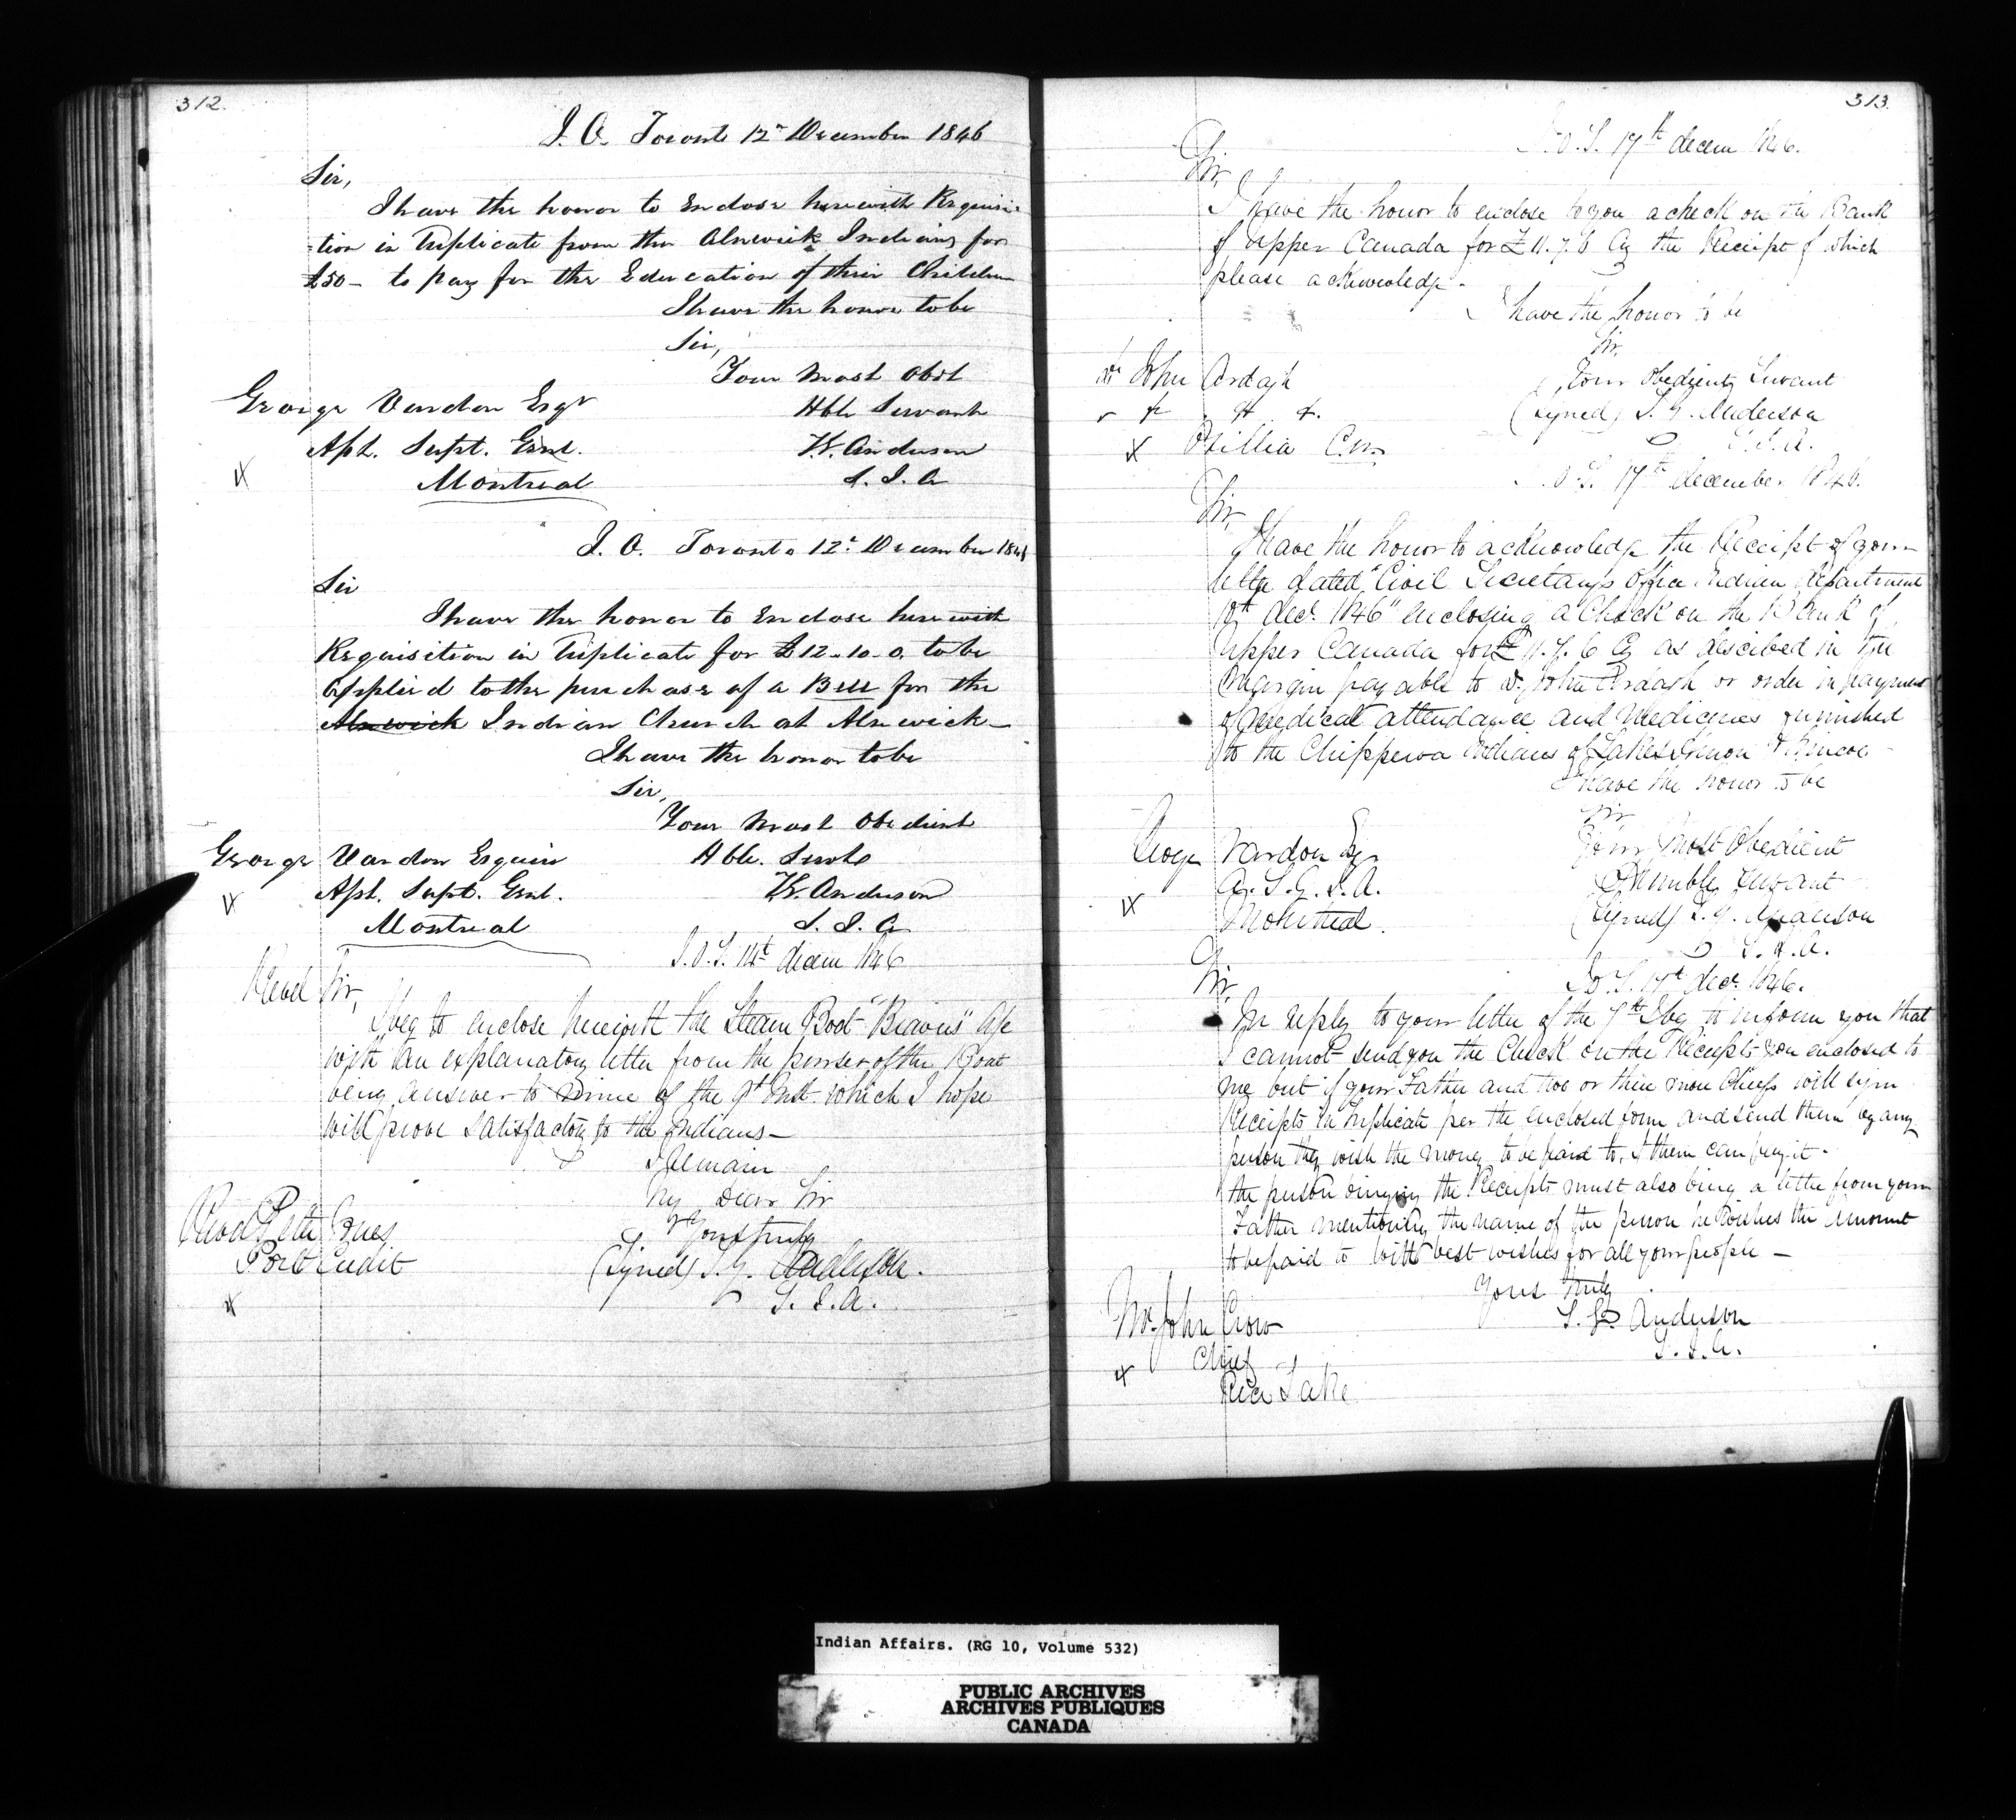 312.
I. O. Toronto 12th December 1846
Sir,
I have the honor to Enclose herewith Requisi-
tion in Triplicate from the Alnwick Indians for
£50 - to pay for the Education of their Children
I have the honor to be
Sir,
Your most Obdt
Hble Servant
George Vardon Esqr
Apt. Supt. Genl.
Montreal
Anderson
S. I. A
I. O. Toronto 12th December 1846
Sir
I have the honor to Enclose herewith
Requisition in Triplicate for £12.10.0. to be
Applied to the purchase of a Bell for the
Alnwick Indian Church at Alnwick -
I have the honor to be
Sir,
Your most Obedient
Hble. Servt
George Vardon Esquire
Apt. Supt. Genl.
Montreal
Anderson
S. I. A
I.O.T. 14t decem 1846
Revd Sir,
I beg to enclose herewith the Steam Boat
with an explanatory letter from the purser of the Boat
being answer to mine of the 9t Inst. which I hope
will prove Satisfactory to the Indians -
I Remain
My Dear Sir
Yours truly
(Signed) T. G. Anderson.
S. I. A.
Revd Peter Jones
Port Credit
313.
I.O.T. 17th decem 1846.
Sir,
I have the honor to enclose to you a check on the Bank
of Upper Canada for £11.7.6 Cy the Receipt of which
please acknowledge -
I have the honor to be
Sir,
Your Obedient Servant
(Signed) T. G. Anderson
S. I. A.
Dr John Ardagh
Orillia C.W.
I.O.T. 17th december 1846.
Sir,
I have the honor to acknowledge the Receipt of your
letter dated "Civil Secretary's Office Indian Department
dec. 1846" enclosing a Check on the Bank of
Upper Canada for £11.7.6 Cy as described in the
Margin payable to Dr. John Ardagh or order in payment
of Medical attendance and Medicines furnished
to the Chippewa Indians of Lakes Huron & Simcoe -
I have the honor to be
Sir
Your Most Obedient
Humble Servant
(Signed) T. G. Anderson
S. I. A.
George Vardon Esqr
A. S. G. I. A.
Montreal.
I.O.T. 17t dec. 1846.
Sir,
In reply to your letter of the 7th I beg to inform you that
I cannot send you the Check on the Receipts you enclosed to
me but if your Father and two or three more Chiefs will sign
Receipts in triplicate per the enclosed form and send them by any
person they wish the money to be paid to, I then can pay it -
the person bringing the Receipts must also bring a letter from your
Father mentioning the name of the person he Wishes the Amount
to be paid to with best wishes for all your people -
Yours truly
T. G. Anderson
S. I. A.
Mr. John Crow
Chief
Rice Lake
Indian Affairs. (RG 10, Volume 532)
PUBLIC ARCHIVES
ARCHIVES PUBLIQUES
CANADA